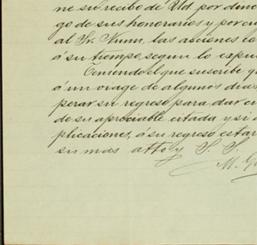 ne su recibo de Vd. por dine
go de sus honorarios y por cu
al Sr. Nunn, las acciones co
á su tiempo, segun lo expue
Teniendo el que suscribe q
á un viage de algunos dias
perar su regreso para dar cu
de su apreciable citada y si a
plicaciones, á su regreso estar
su mas atto y S. S.
M. G